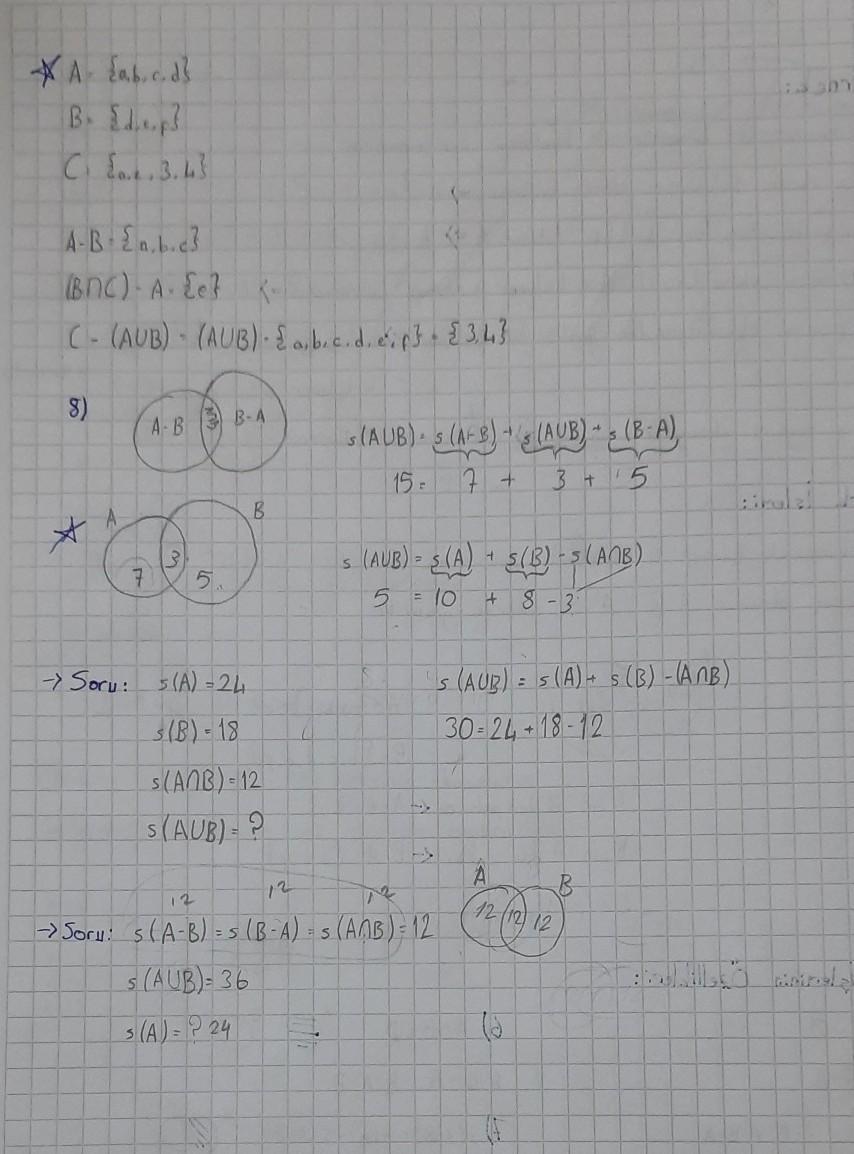 A = {a,b,c,d}
B = {d,e,f}
C = {a,e,3,4}
A-B = {a,b,c}
(B∩C) - A = {e}
C - (A∪B) = (A∪B) = {a,b,c,d,e,f} = {3,4}
8) A-B 3 B-A
s(A∪B) = s(A-B) + s(A∪B) + s(B-A)
15 = 7 + 3 + 5
A B
7 3 5
s(A∪B) = s(A) + s(B) - s(A∩B)
5 = 10 + 8 - 3
→ Soru: s(A) = 24
s(B) = 18
s(A∩B) = 12
s(A∪B) = ?
s(A∪B) = s(A) + s(B) - (A∩B)
30 = 24 + 18 - 12
12 12 12
→ Soru: s(A-B) = s(B-A) = s(A∩B) = 12
s(A∪B) = 36
s(A) = ? 24
A B
12 12 12